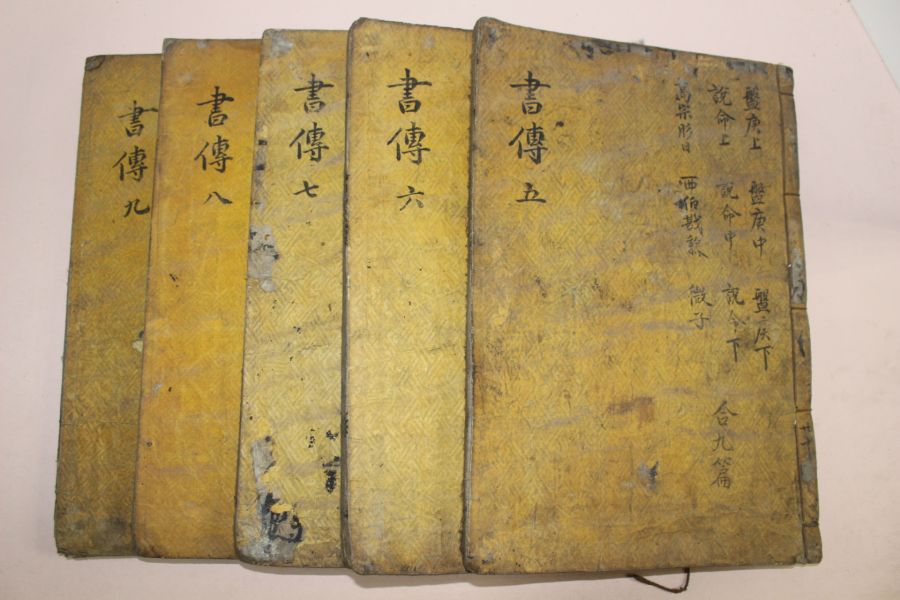 盤庚上 盤庚中 盤庚下
說命上 說命中 說命下 合九篇
高宗肜日 西伯戡黎 微子
書傳 五
書傳 六
書傳 七
書傳 八
書傳 九